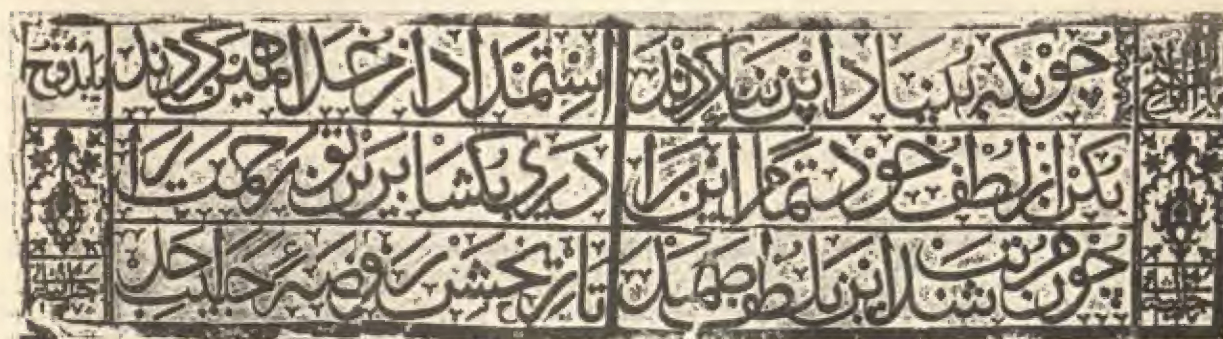 چونکه بنیاد این بنا کردند استمداد از خدا همین کردند
بکن از لطف خود تمام این را دری بکشا برین تو رحمت را
چون مرتب شد این بلطف صمد تاریخش روضهٔ